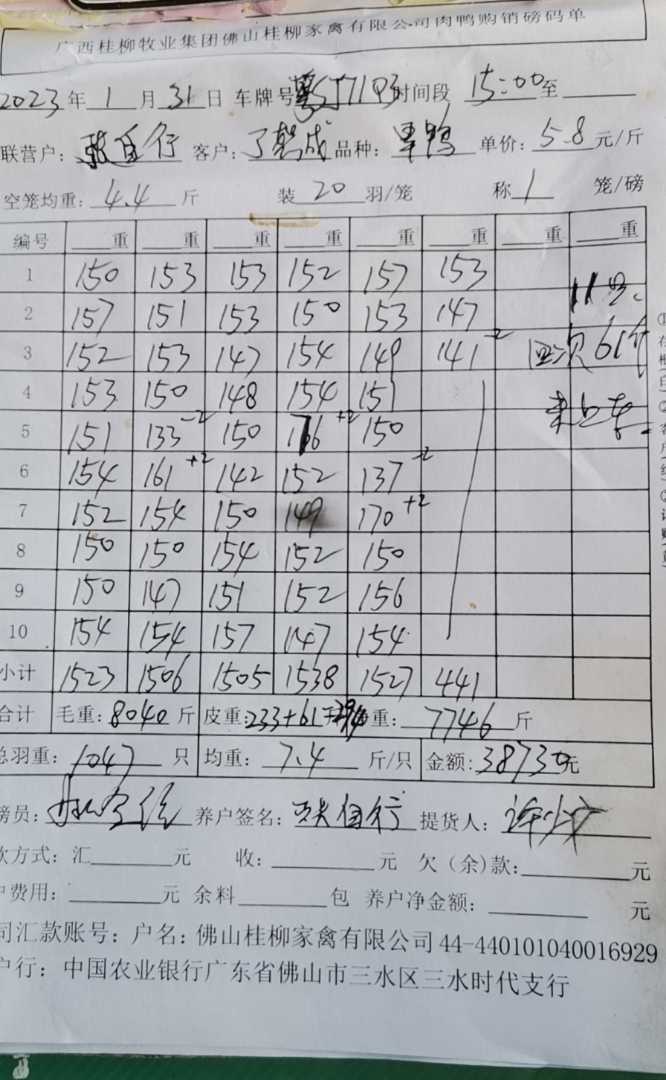 广西桂柳牧业集团佛山桂柳家禽有限公司肉鸭购销磅码单
2023年1月31日 车牌号 时间段 15:00至
联营户: 客户: 品种: 单价: 5.8元/斤
空笼均重: 4.4斤 装20羽/笼 称1笼/磅
编号 重 重 重 重 重 重 重 重
1 150 153 153 152 157 153
2 157 151 153 150 153 147
3 152 153 147 154 149 141 -2 四次61个
4 153 150 148 154 151
5 151 133 -2 150 +2 150
6 154 161 +2 142 152 137 -2
7 152 154 150 149 170 +2
8 150 150 154 152 150
9 150 147 151 152 156
10 154 154 157 147 154
小计 1523 1506 1505 1538 1527 441
合计 毛重: 8040斤 皮重: 233+61 重: 7746斤
总羽重: 1047只 均重: 7.4斤/只 金额: 元
磅员: 养户签名: 提货人:
款方式: 汇 元 收: 元 欠(余)款: 元
户费用: 元 余料 包 养户净金额: 元
司汇款账号: 户名: 佛山桂柳家禽有限公司 44-440101040016929
户行: 中国农业银行广东省佛山市三水区三水时代支行